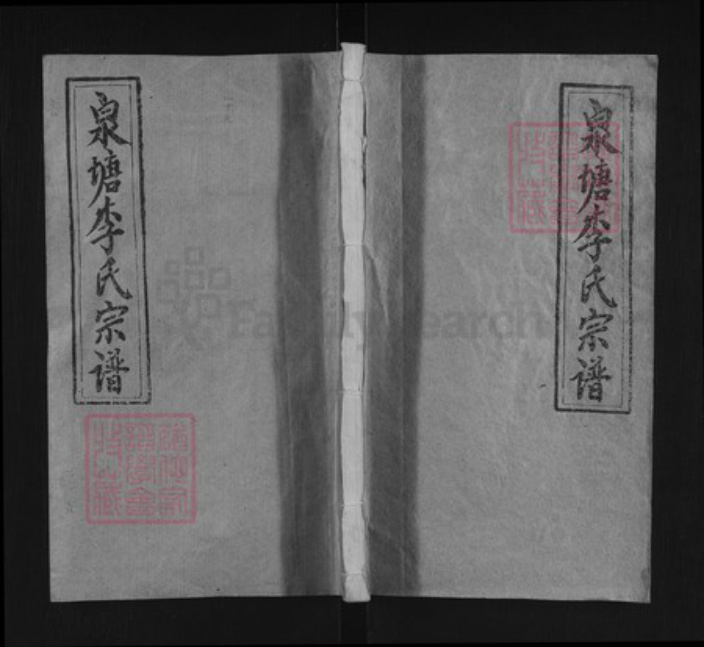 泉塘李氏宗譜
泉塘李氏宗譜
FamilySearch